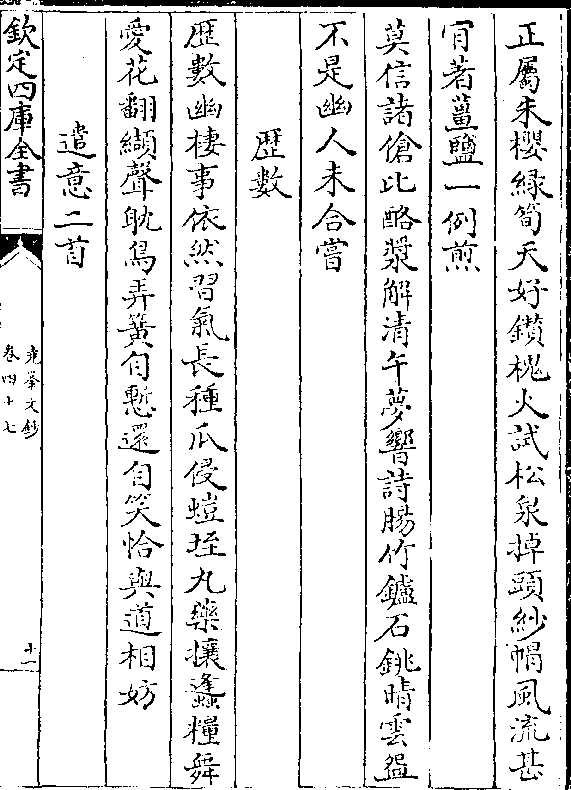 正屬朱櫻緑筍天好鑚槐火試松泉掉頭紗㡌風流甚
肎著薑鹽一例煎
莫信諸傖比酪漿解清午夢響詩腸竹鑪石銚晴雲盌
不是幽人未合嘗
歴數
歴數幽棲事依然習氣長種𤓰侵螘垤丸藥攘蠭糧舞
愛花翻纈聲耽鳥弄簧自慙還自笑恰與道相妨
遣意二首
欽定四庫全書
堯峯文鈔
卷四十七
十一